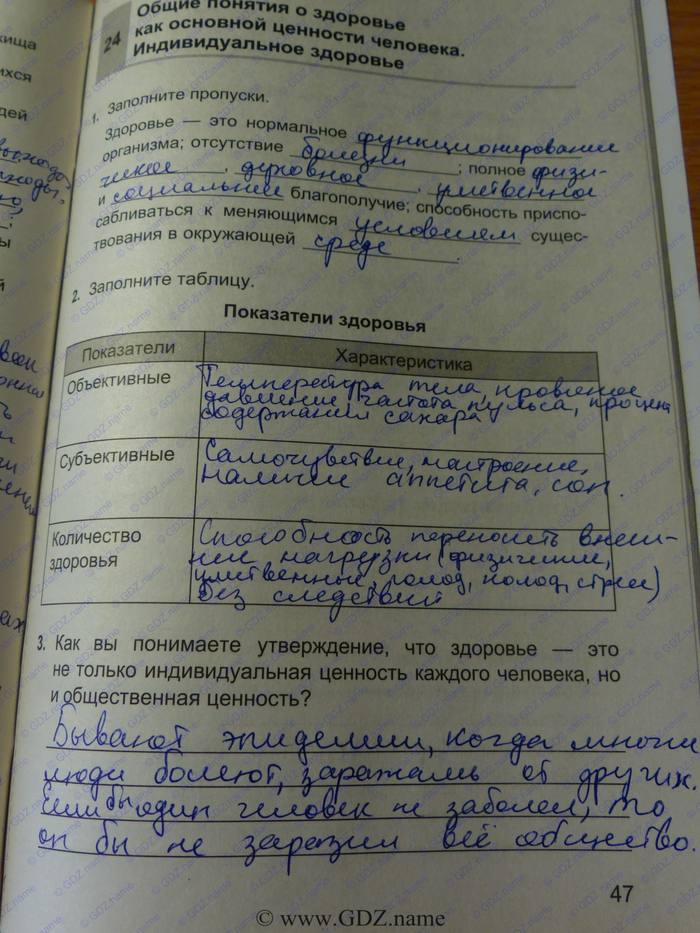 24
Общие понятия о здоровье
как основной ценности человека.
Индивидуальное здоровье
1. Заполните пропуски.
Здоровье — это нормальное функционирование
организма; отсутствие болезни ; полное физи-
ческое , духовное , умственное
и социальное благополучие; способность приспо-
сабливаться к меняющимся условиям сущес-
твования в окружающей среде .
2. Заполните таблицу.
Показатели здоровья
Показатели Характеристика
Объективные
Температура тела, кровяное
давление частота пульса, процент
содержания сахара
Субъективные
Самочувствие, настроение,
наличие аппетита, сон.
Количество
здоровья
Способность переносить внеш-
ние нагрузки (физические,
умственные, голод, холод, стресс)
без следствий
3. Как вы понимаете утверждение, что здоровье — это
не только индивидуальная ценность каждого человека, но
и общественная ценность?
Бывают эпидемии, когда многие
люди болеют, заражаясь от других.
Если бы один человек не заболел, то
он бы не заразил всё общество.
47
© www.GDZ.name